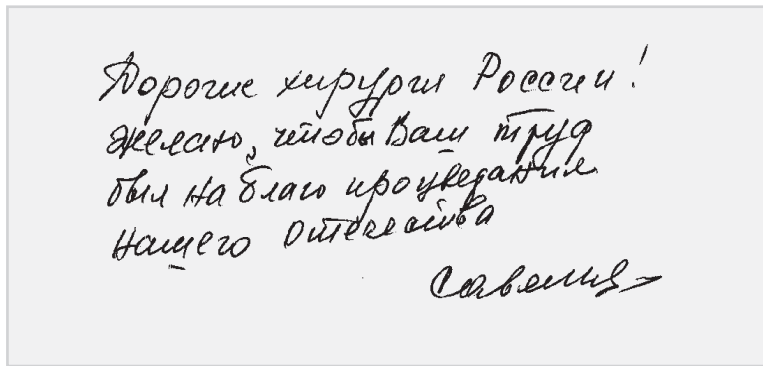 Дорогие хирурги России!
Желаю, чтобы Ваш труд
был на благо процветания
нашего отечества